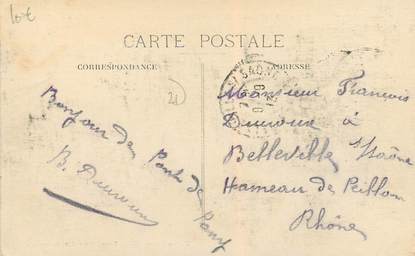 10€
CARTE POSTALE
CORRESPONDANCE
ADRESSE
21
Bonjour de Pont de Pany
B. Duroux
Monsieur François
Duroux à
Belleville s/Saône
Hameau de Peillon
Rhône